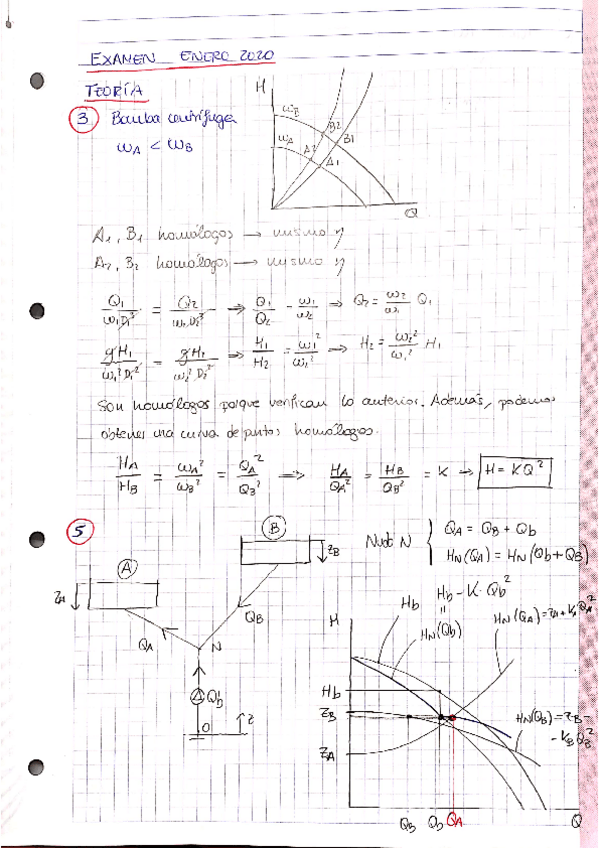 EXAMEN ENERO 2020
TEORÍA
3 Bomba centrífuga
ωA < ωB
H
ωB
ωA
B2
B1
A2
A1
Q
A1, B1 homólogos → mismo η
A2, B2 homólogos → mismo η
Q1/ω1D1³ = Q2/ω2D2³ → Q1/Q2 = ω1/ω2 → Q2 = ω2/ω1 Q1
gH1/ω1²D1² = gH2/ω2²D2² → H1/H2 = ω1²/ω2² → H2 = ω2²/ω1² H1
Son homólogos porque verifican lo anterior. Además, podemos
obtener una curva de puntos homólogos.
HA/HB = ωA²/ωB² = QA²/QB² ⇒ HA/QA² = HB/QB² = K → H = KQ²
5
B
zB
A
zA
QA
QB
N
Qb
O
z
Nudo N { QA = QB + Qb
HN(QA) = HN(Qb + QB)
Hb - K·Qb²
=
HN(Qb)
Hb
HN(QA) = zA + KA QA²
H
Hb
zB
zA
HN(QB) = zB -
- KB QB²
QB
Qb
QA
Q